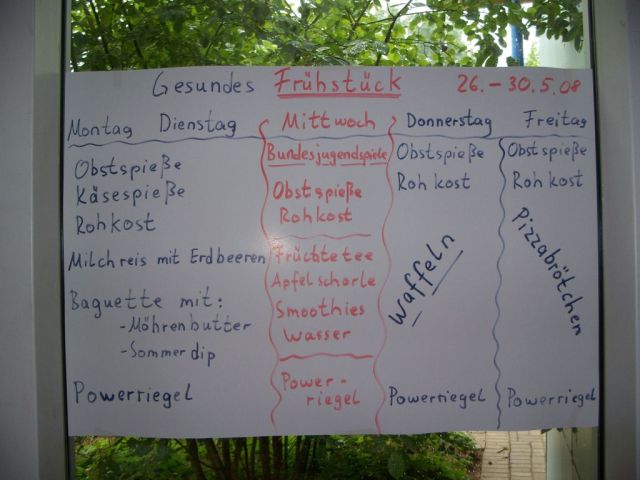 Gesundes Frühstück 26.-30.5.08
Montag Dienstag
Obstspieße
Käsespieße
Rohkost
Milchreis mit Erdbeeren
Baguette mit:
-Möhrenbutter
-Sommerdip
Powerriegel
Mittwoch
Bundesjugendspiele
Obstspieße
Rohkost
Früchtetee
Apfelschorle
Smoothies
Wasser
Power-
riegel
Donnerstag
Obstspieße
Rohkost
Waffeln
Powerriegel
Freitag
Obstspieße
Rohkost
Pizzabrötchen
Powerriegel